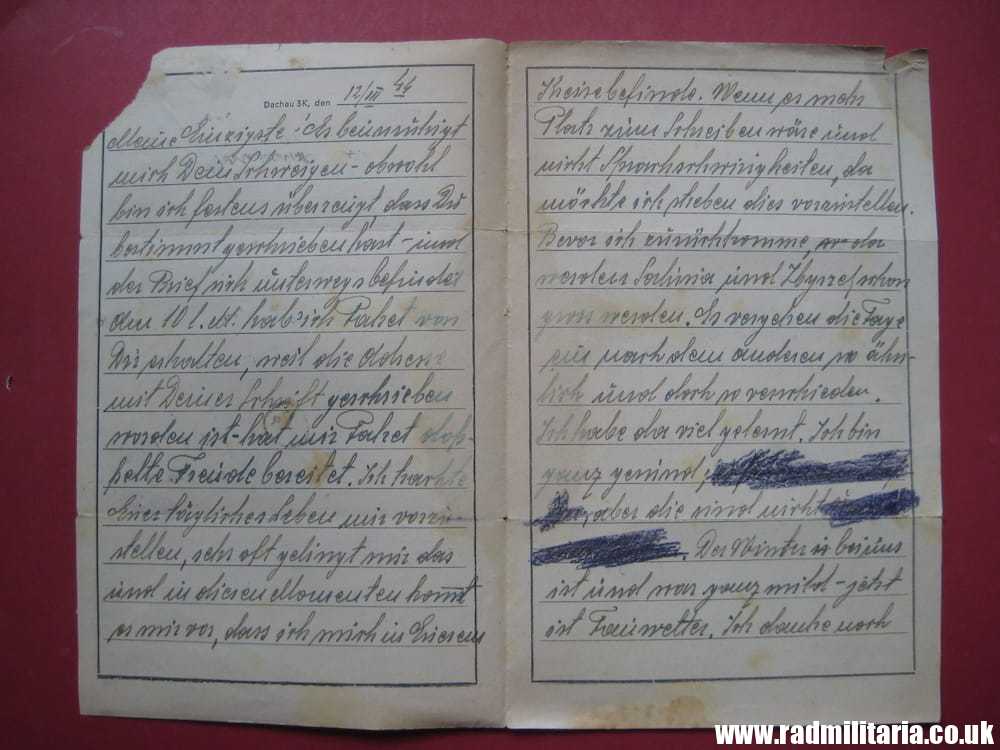 Dachau 3K, den 12/III 44
Meine Einzigste! Es beunruhigt
mich Dein Schweigen - obwohl
bin ich festens überzeugt, dass Du
bestimmt geschrieben hast - und
der Brief sich unterwegs befindet
den 10 l. M. hab' ich Paket von
Dir erhalten, weil die Adresse
mit Deiner Schrift geschrieben
worden ist - hat mir Paket dop-
pelte Freude bereitet. Ich
Euer tägliches Leben mir vorzu-
stellen, sehr oft gelingt mir das
und in diesen Momenten kommt
es mir vor, dass ich mich in Eurem
Kreise befinde. Wenn es mehr
Platz zum Schreiben wäre und
nicht, da
möchte ich dies vorzustellen.
Bevor ich zurückkomme, da
werden und Zbyszek schon
gross werden. Es vergehen die Tage
ein nach dem anderen so ähn-
lich und doch so verschieden.
Ich habe da viel gelernt. Ich bin
ganz gesund,
aber die sind nicht
. Der Winter bei uns
ist und war ganz mild - jetzt
ist Tauwetter. Ich danke noch
www.radmilitaria.co.uk